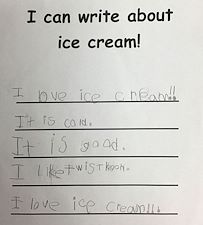 I can write about
ice cream!
I love ice cream!!
It is cold.
It is good.
I like twist
I love ice cream!!.